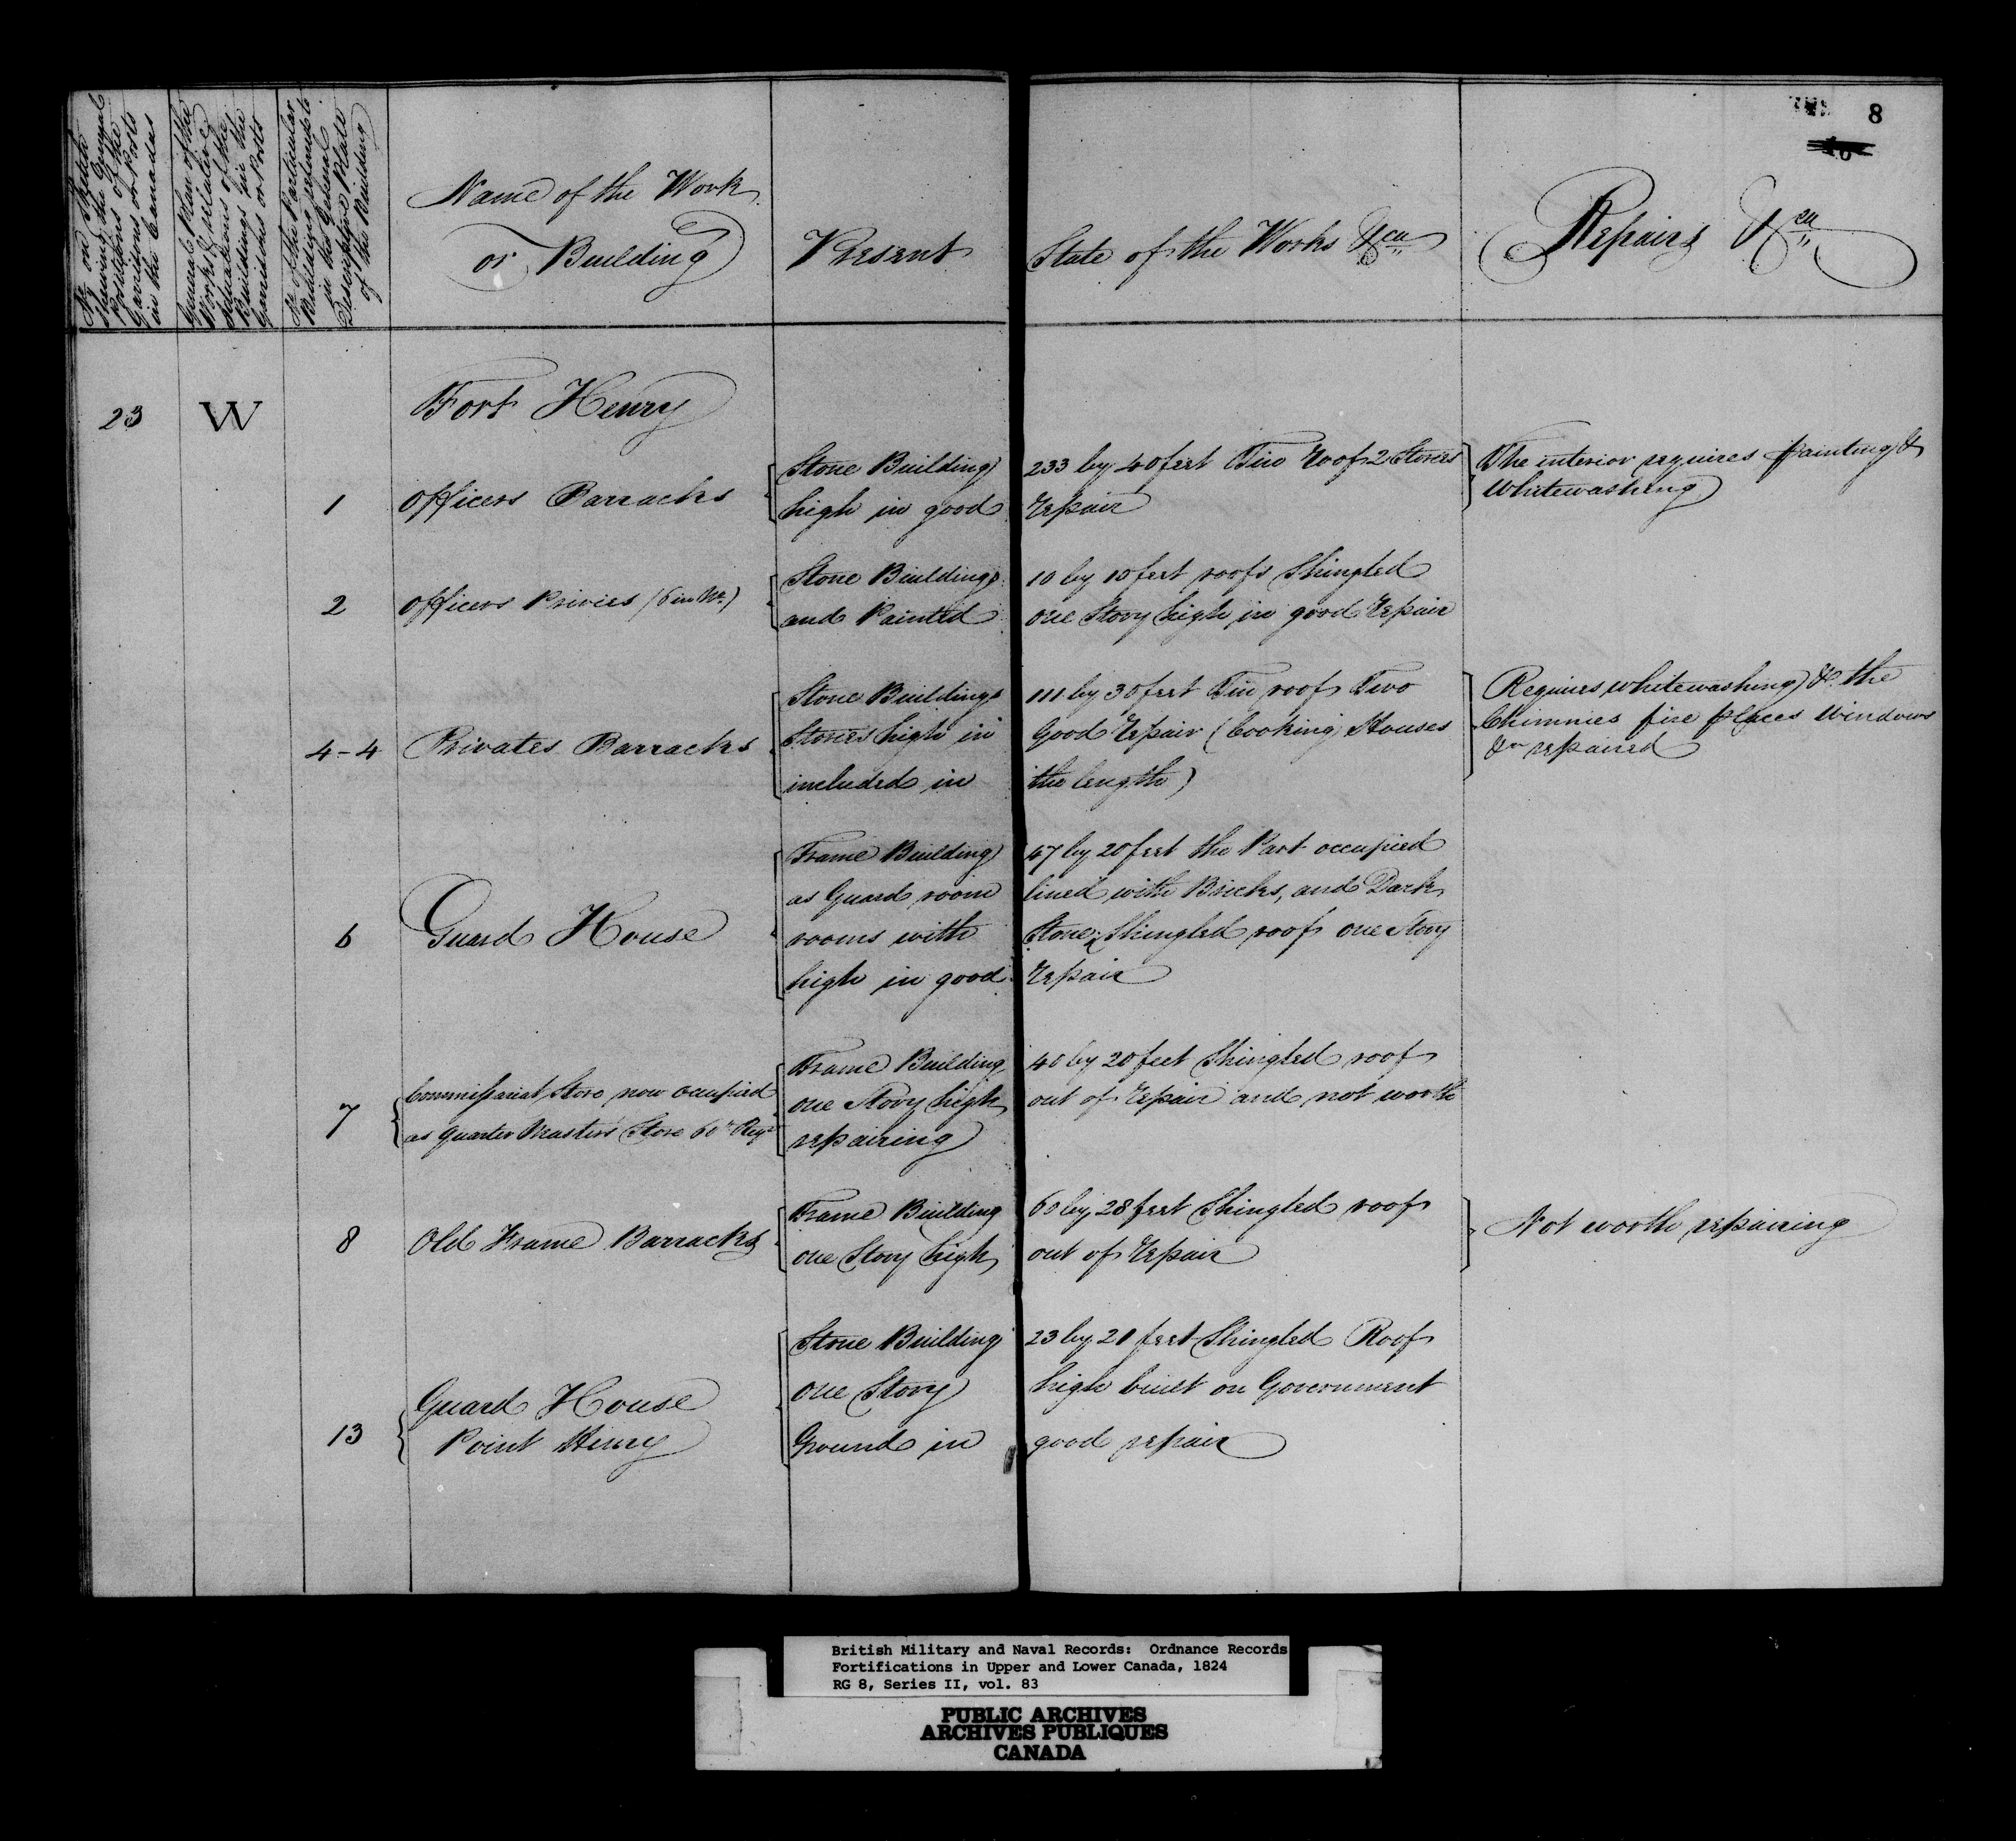 8
No on Sketch
shewing the General
Positions of the
Garrisons or Posts
in the Canadas
General Plan of the
Works & relative
situations of the
Buildings in the
Garrisons or Posts
No of the Particular
Buildings referred to
in the General
Descriptive Plate
of the Building
Name of the Work
or Building
Present State of the Works &ca
Repairs &ca
23 W Fort Henry
1 Officers Barracks
Stone Building 233 by 40 feet Tin Roof 2 Stories
high in good repair
The interior requires painting &
Whitewashing
2 Officers Privies (6 in No.)
Stone Buildings 10 by 10 feet roofs Shingled
and Painted one Story high in good repair
4-4 Privates Barracks
Stone Buildings 111 by 30 feet Tin roofs Two
Stories high in good repair (Cooking Houses
included in the length)
Requires whitewashing & the
Chimnies fire places Windows
&ca repaired
6 Guard House
Frame Building 47 by 20 feet the Part occupied
as Guard room lined with Bricks, and Dark
rooms with Stone, Shingled roof one Story
high in good repair
7 Commissariat Store now occupied
as Quarter Master's Store 60th Regt
Frame Building 40 by 20 feet Shingled roof
one Story high out of repair and not worth
repairing
8 Old Frame Barracks
Frame Building 60 by 28 feet Shingled roof
one Story high out of repair
Not worth repairing
13 Guard House
Point Henry
Stone Building 23 by 21 feet Shingled Roof
one Story high built on Government
Ground in good repair
British Military and Naval Records: Ordnance Records
Fortifications in Upper and Lower Canada, 1824
RG 8, Series II, vol. 83
PUBLIC ARCHIVES
ARCHIVES PUBLIQUES
CANADA